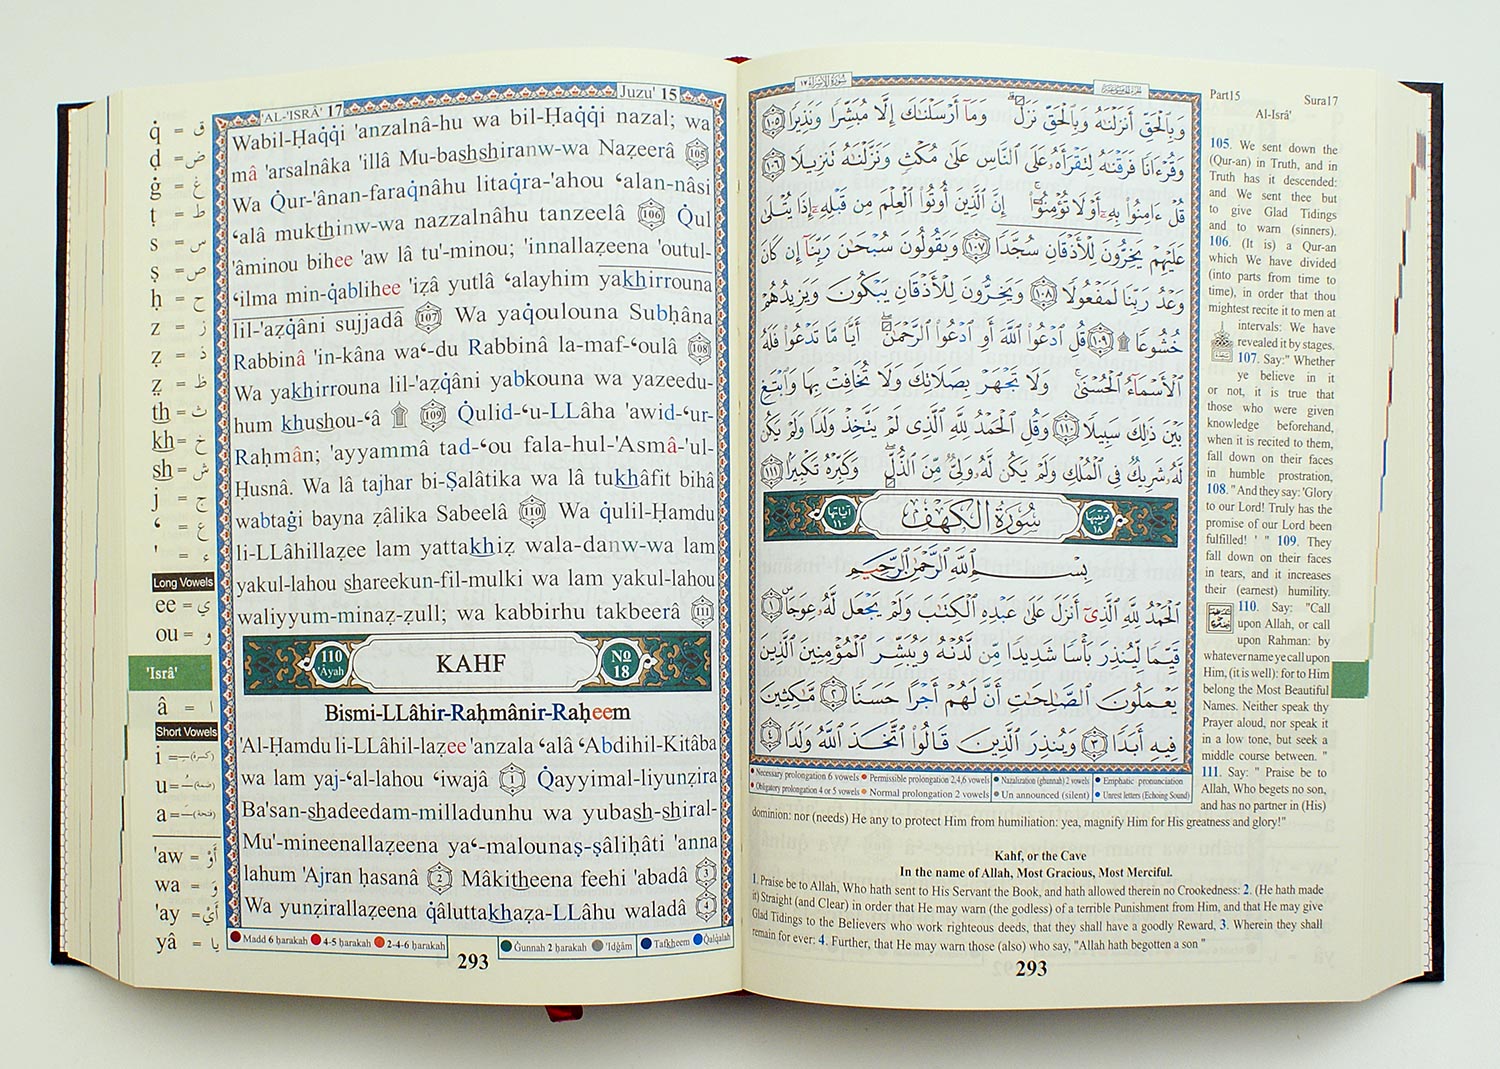 'AL-'ISRÂ' 17
Juzu' 15
q̇ = ق
ḍ = ض
ġ = غ
ṭ = ط
s = س
ṣ = ص
ḥ = ح
z = ز
ẓ = ذ
ẓ = ظ
th = ث
kh = خ
sh = ش
j = ج
ʻ = ع
' = ء
Long Vowels
ee = ي
ou = و
'Isrâ'
â = ا
Short Vowels
i = (كسرة)
u = (ضمة)
a = (فتحة)
'aw = أَوْ
wa = وَ
'ay = أَيْ
yâ = يا
Wabil-Ḥaq̇q̇i 'anzalnâ-hu wa bil-Ḥaq̇q̇i nazal; wa
mâ 'arsalnâka 'illâ Mu-bashshiranw-wa Naẓeerâ 105
Wa Q̇ur-'ânan-faraq̇nâhu litaq̇ra-'ahou ʻalan-nâsi
ʻalâ mukthinw-wa nazzalnâhu tanzeelâ 106 Q̇ul
'âminou bihee 'aw lâ tu'-minou; 'innallaẓeena 'outul-
ʻilma min-q̇ablihee 'iẓâ yutlâ ʻalayhim yakhirrouna
lil-'aẓq̇âni sujjadâ 107 Wa yaq̇oulouna Subḥâna
Rabbinâ 'in-kâna waʻ-du Rabbinâ la-maf-ʻoulâ 108
Wa yakhirrouna lil-'aẓq̇âni yabkouna wa yazeedu-
hum khushou-ʻâ ۩ 109 Q̇ulid-ʻu-LLâha 'awid-ʻur-
Raḥmân; 'ayyammâ tad-ʻou fala-hul-'Asmâ-'ul-
Ḥusnâ. Wa lâ tajhar bi-Ṣalâtika wa lâ tukhâfit bihâ
wabtaġi bayna ẓâlika Sabeelâ 110 Wa q̇ulil-Ḥamdu
li-LLâhillaẓee lam yattakhiẓ wala-danw-wa lam
yakul-lahou shareekun-fil-mulki wa lam yakul-lahou
waliyyum-minaẓ-ẓull; wa kabbirhu takbeerâ 111
110 'Âyah KAHF No 18
Bismi-LLâhir-Raḥmânir-Raḥeem
'Al-Ḥamdu li-LLâhil-laẓee 'anzala ʻalâ ʻAbdihil-Kitâba
wa lam yaj-ʻal-lahou ʻiwajâ 1 Q̇ayyimal-liyunẓira
Ba'san-shadeedam-milladunhu wa yubash-shiral-
Mu'-mineenallaẓeena yaʻ-malounaṣ-ṣâliḥâti 'anna
lahum 'Ajran ḥasanâ 2 Mâkitheena feehi 'abadâ 3
Wa yunẓirallaẓeena q̇âluttakhaẓa-LLâhu waladâ 4
Madd 6 ḥarakah 4-5 ḥarakah 2-4-6 ḥarakah Ġunnah 2 ḥarakah 'Idġâm Tafkheem Q̇alq̇alah
293
سُورَةُ الإِسْرَاء ١٧
وَبِالْحَقِّ أَنزَلْنَاهُ وَبِالْحَقِّ نَزَلَ وَمَا أَرْسَلْنَاكَ إِلَّا مُبَشِّرًا وَنَذِيرًا ١٠٥
وَقُرْءَانًا فَرَقْنَاهُ لِتَقْرَأَهُ عَلَى النَّاسِ عَلَى مُكْثٍ وَنَزَّلْنَاهُ تَنزِيلًا ١٠٦
قُلْ ءَامِنُوا بِهِ أَوْ لَا تُؤْمِنُوا إِنَّ الَّذِينَ أُوتُوا الْعِلْمَ مِن قَبْلِهِ إِذَا يُتْلَى
عَلَيْهِمْ يَخِرُّونَ لِلْأَذْقَانِ سُجَّدًا ١٠٧ وَيَقُولُونَ سُبْحَانَ رَبِّنَا إِن كَانَ
وَعْدُ رَبِّنَا لَمَفْعُولًا ١٠٨ وَيَخِرُّونَ لِلْأَذْقَانِ يَبْكُونَ وَيَزِيدُهُمْ
خُشُوعًا ۩ ١٠٩ قُلِ ادْعُوا اللَّهَ أَوِ ادْعُوا الرَّحْمَنَ أَيًّا مَّا تَدْعُوا فَلَهُ
الْأَسْمَاءُ الْحُسْنَى وَلَا تَجْهَرْ بِصَلَاتِكَ وَلَا تُخَافِتْ بِهَا وَابْتَغِ
بَيْنَ ذَلِكَ سَبِيلًا ١١٠ وَقُلِ الْحَمْدُ لِلَّهِ الَّذِي لَمْ يَتَّخِذْ وَلَدًا وَلَمْ يَكُن
لَّهُ شَرِيكٌ فِي الْمُلْكِ وَلَمْ يَكُن لَّهُ وَلِيٌّ مِّنَ الذُّلِّ وَكَبِّرْهُ تَكْبِيرًا ١١١
ترتيبها ١٨ سُورَةُ الكَهْف آياتها ١١٠
بِسْمِ اللَّهِ الرَّحْمَنِ الرَّحِيمِ
الْحَمْدُ لِلَّهِ الَّذِي أَنزَلَ عَلَى عَبْدِهِ الْكِتَابَ وَلَمْ يَجْعَل لَّهُ عِوَجًا ١
قَيِّمًا لِّيُنذِرَ بَأْسًا شَدِيدًا مِّن لَّدُنْهُ وَيُبَشِّرَ الْمُؤْمِنِينَ الَّذِينَ
يَعْمَلُونَ الصَّالِحَاتِ أَنَّ لَهُمْ أَجْرًا حَسَنًا ٢ مَّاكِثِينَ
فِيهِ أَبَدًا ٣ وَيُنذِرَ الَّذِينَ قَالُوا اتَّخَذَ اللَّهُ وَلَدًا ٤
Necessary prolongation 6 vowels Permissible prolongation 2,4,6 vowels Nazalization (ghunnah) 2 vowels Emphatic pronunciation
Obligatory prolongation 4 or 5 vowels Normal prolongation 2 vowels Un announced (silent) Unrest letters (Echoing Sound)
Part15 Sura17
Al-Isrâ'
105. We sent down the
(Qur-an) in Truth, and in
Truth has it descended:
and We sent thee but
to give Glad Tidings
and to warn (sinners).
106. (It is) a Qur-an
which We have divided
(into parts from time to
time), in order that thou
mightest recite it to men at
intervals: We have
revealed it by stages.
107. Say:" Whether
ye believe in it
or not, it is true that
those who were given
knowledge beforehand,
when it is recited to them,
fall down on their faces
in humble prostration,
108. "And they say: 'Glory
to our Lord! Truly has the
promise of our Lord been
fulfilled! ' " 109. They
fall down on their faces
in tears, and it increases
their (earnest) humility.
110. Say: "Call
upon Allah, or call
upon Rahman: by
whatever name ye call upon
Him, (it is well): for to Him
belong the Most Beautiful
Names. Neither speak thy
Prayer aloud, nor speak it
in a low tone, but seek a
middle course between. "
111. Say: " Praise be to
Allah, Who begets no son,
and has no partner in (His)
dominion: nor (needs) He any to protect Him from humiliation: yea, magnify Him for His greatness and glory!"
Kahf, or the Cave
In the name of Allah, Most Gracious, Most Merciful.
1. Praise be to Allah, Who hath sent to His Servant the Book, and hath allowed therein no Crookedness: 2. (He hath made
it) Straight (and Clear) in order that He may warn (the godless) of a terrible Punishment from Him, and that He may give
Glad Tidings to the Believers who work righteous deeds, that they shall have a goodly Reward, 3. Wherein they shall
remain for ever: 4. Further, that He may warn those (also) who say, "Allah hath begotten a son "
293